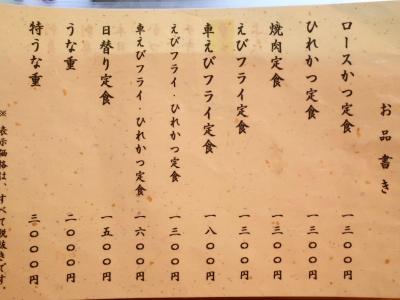 お品書き
ロースかつ定食 一三〇〇円
ひれかつ定食 一三〇〇円
焼肉定食 一三〇〇円
えびフライ定食 一三〇〇円
車えびフライ定食 一八〇〇円
えびフライ・ひれかつ定食 一三〇〇円
車えびフライ・ひれかつ定食 一六〇〇円
日替り定食 一五〇〇円
うな重 二〇〇〇円
特うな重 三〇〇〇円
※ 表示価格は、すべて税抜きです。